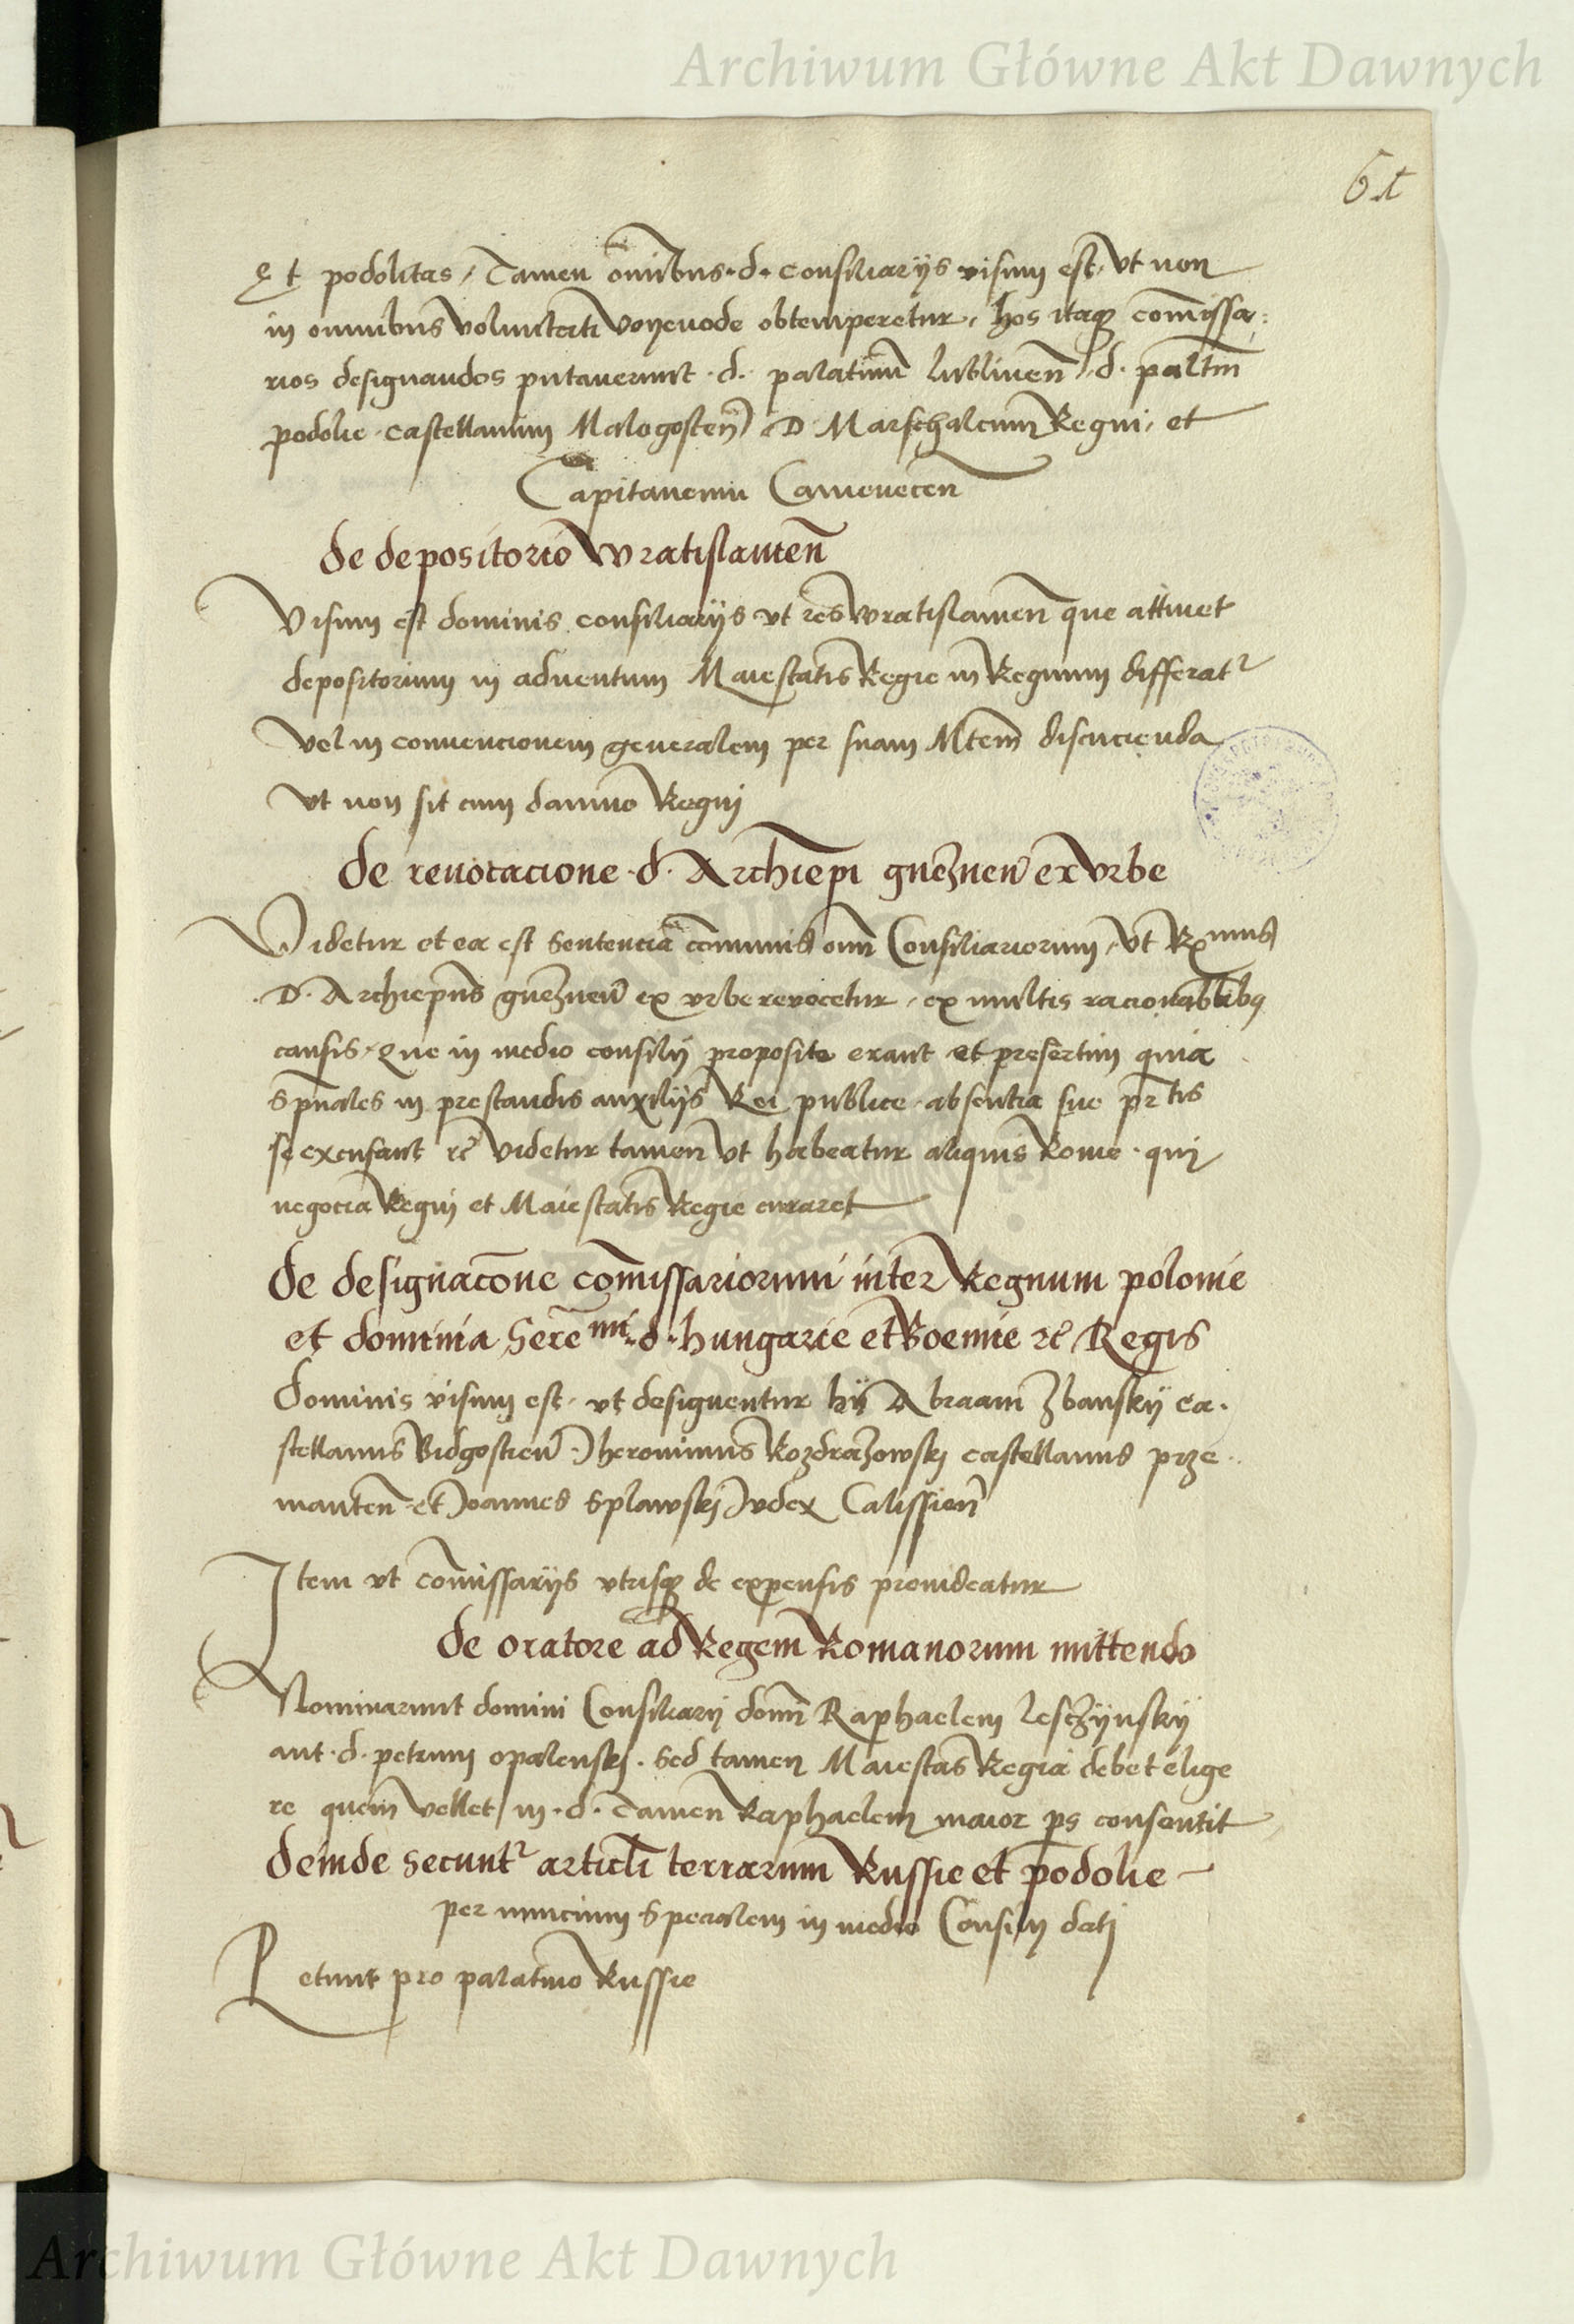 Archiwum Główne Akt Dawnych
61
Et podolitas, Tamen om̄ibus · d · consiliarÿs visum est, vt non
in omnibus voluntati Voyevode obtemperetur, hos itaqȝ com̄issa:
rios designandos putaverunt · d · palatinū lublinen̄, d · paltm̄
podolie · castellanum Malogosten̄, D Marschalcum Regni, et
Capitaneum Camenecen̄
de depositorio Wratislauien̄
Visum est dominis consiliarÿs vt res wratislauien̄ que attinet
depositorium in aduentum Maiestatis Regie in Regnum differatr
Vel in convencionem generalem per suam Mtem̄ discucienda
vt non sit cum damno Regnj
de reuocacione · d · Archiepi gneznen̄ ex vrbe
Videtur et ea est sentencia com̄unis om̄ Consiliariorum, Vt Rxmus
· D · Archiepūs gneznen̄ ex vrbe revocetur, ex multis racionabilibꝫ
causis, que in medio consilÿ proposite erant et presertim quia
sp̄uales in prestandis auxilÿs Rei publice absentia sue pr̄tis
se excusant rc̄ videtur tamen vt habeatur aliquis Rome · quj
negocia Regnj et Maiestatis Regie curaret
de designacōne com̄issariorum inter Regnum polonie
et dominia Serē mi · d · hungarie et Boemie rc̄ Regis
Dominis visum est, vt designentur hÿ Abraam Zbanskÿ ca ·
stellanus Bidgostien̄ Iheronimus Rozdrazowskj castellanus prze ··
manten̄ et Ioannes Splawskj Iudex Calissien̄
Item vt com̄issarÿs vtrisqȝ de expensis prouideatur
de oratore ad Regem Romanorum mittendo
Nominarunt domini Consiliarij dom̄ Raphaelem lesczÿnskÿ
aut · d · petrum opalenskj · Sed tamen Maiestas Regia debet elige
re quem vellet, in · d · Tamen Raphaelem maior ps consentit
deinde secuntr articl̄i terrarum Russie et podolie –
per nuncium specialem in medio Consilÿ datj
Petunt pro palatino Russie
Archiwum Główne Akt Dawnych